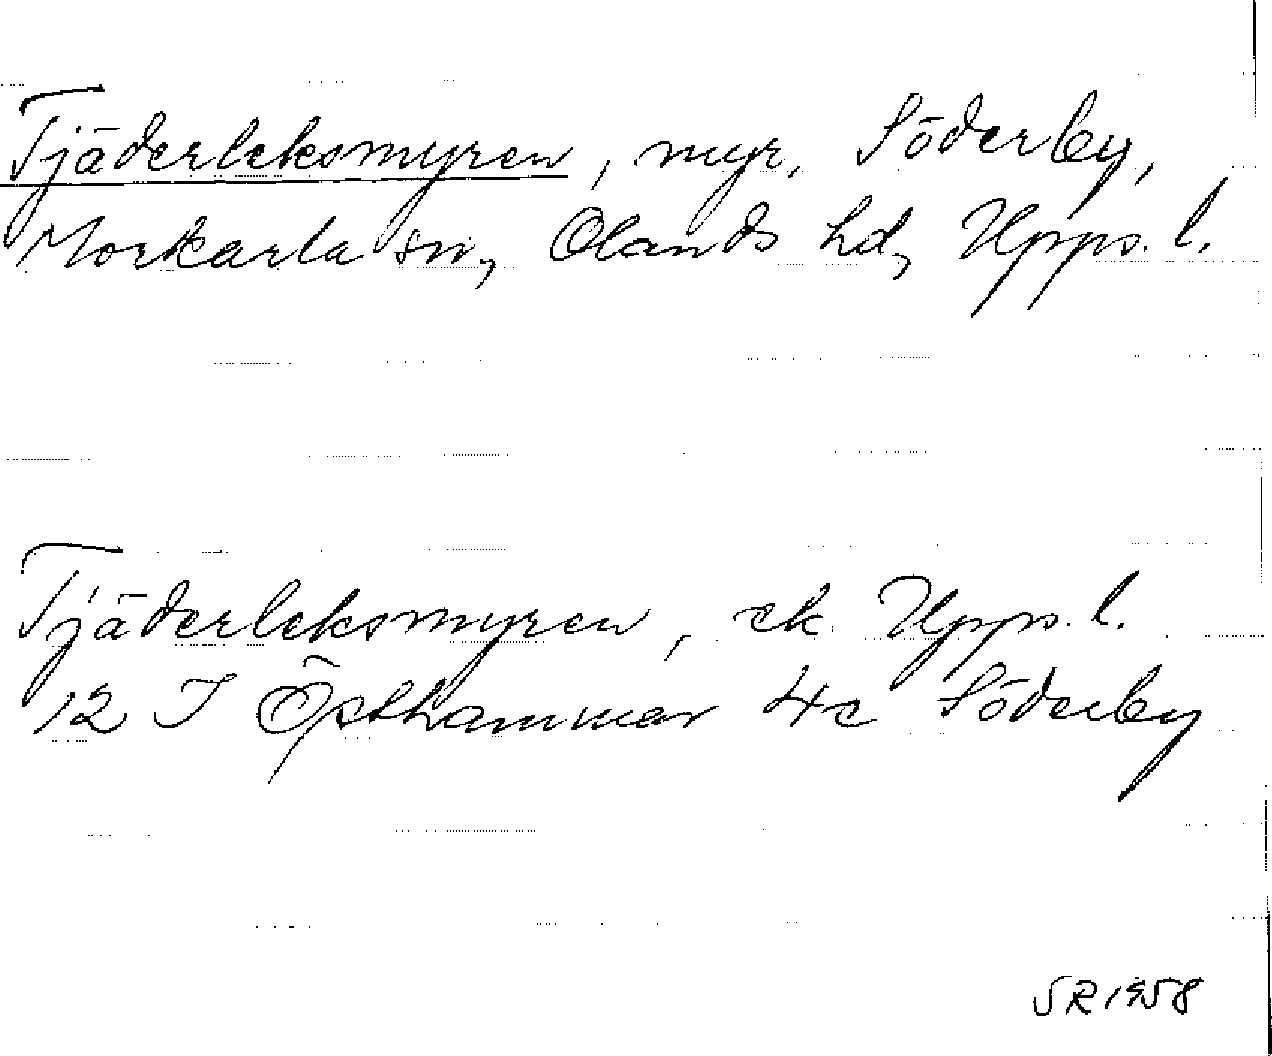 Tjäderleksmyren, myr, Söderby,
Morkarla sn, Olands hd, Upps. l.
Tjäderleksmyren, ek. Upps. l.
12 I Östhammar 4c Söderby
SR 1958